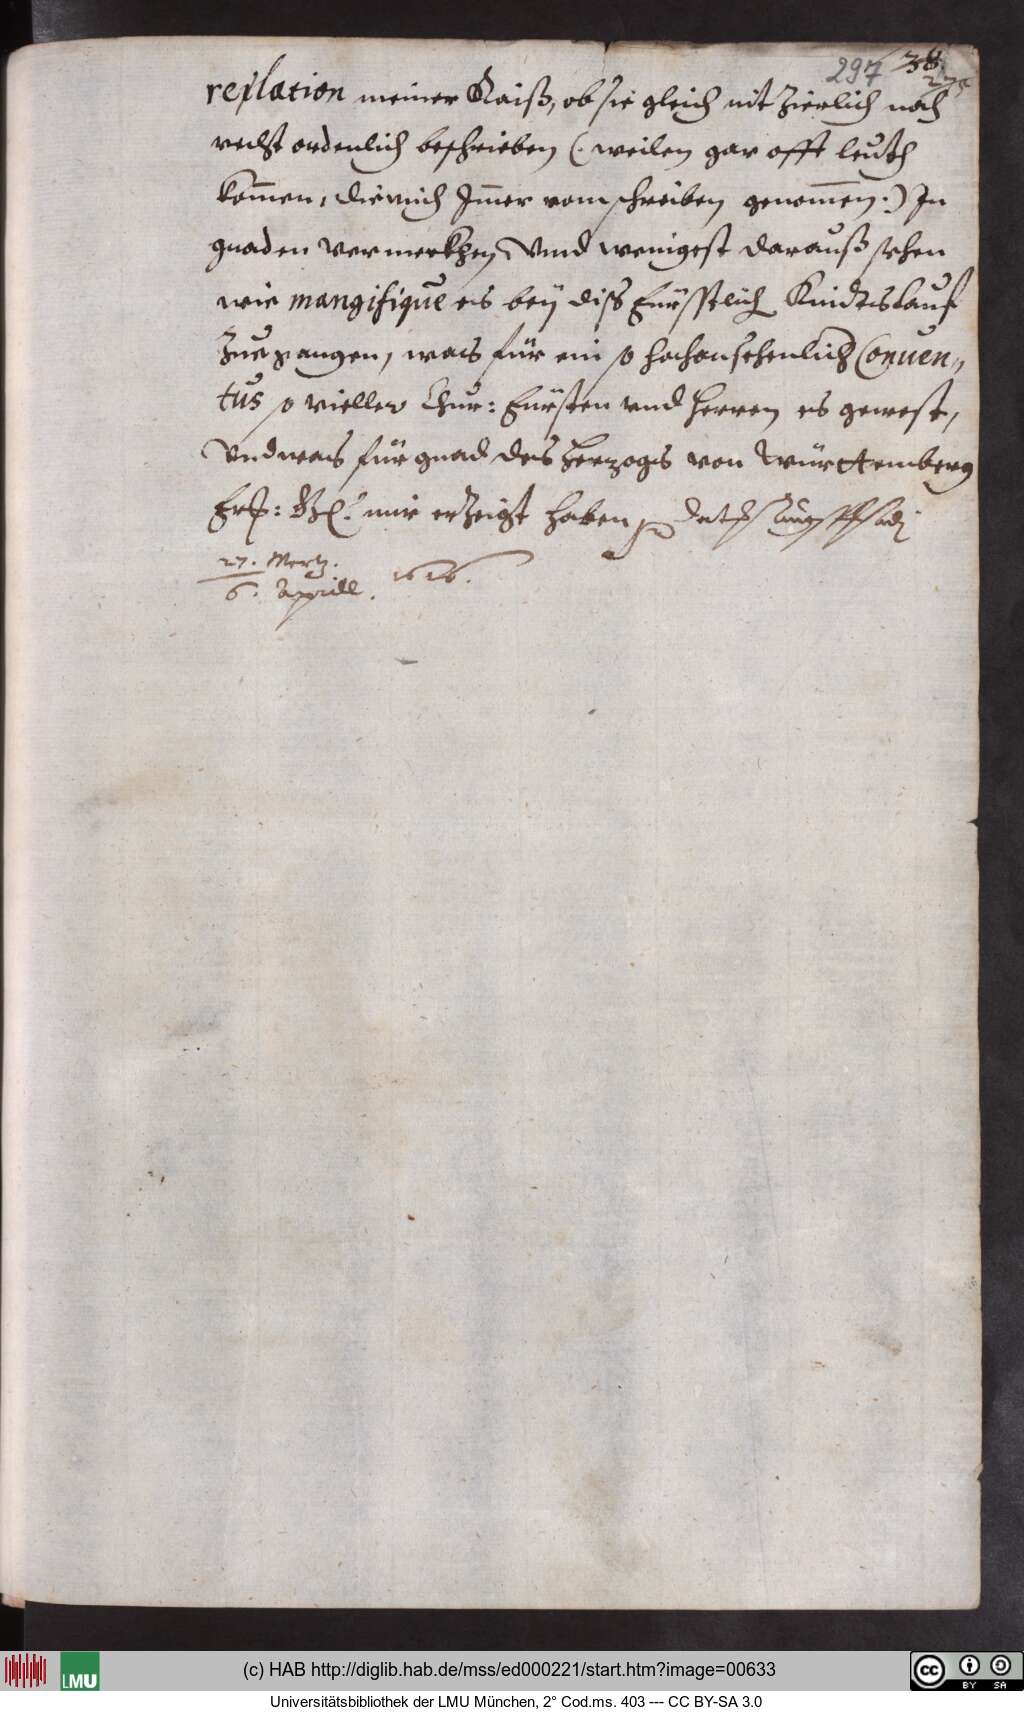 297 38
275
relation meiner Raiß, ob sie gleich nit Zierlich noch
recht ordenlich beschrieben (. weilen gar offt leuth
kom̄en, die mich Im̄er vom schreiben genom̄en .) In
gnaden vermerkhen, Vnnd wenigest darauß sehen
wie mangifique es bey diss Fürstlich Kindtslauf
Zuegangen, was für ein so hochansehenlich Conuen„
tus so vieller Chur: Fürsten vnd Herren es gewest,
Vnd was für gnad des Herzogs von Württemberg
Frh: Gl: mir erzeigt haben,
27. Mertz.
6. Aprill. 1616.
(c) HAB http://diglib.hab.de/mss/ed000221/start.htm?image=00633
LMU
cc BY SA
Universitätsbibliothek der LMU München, 2° Cod.ms. 403 --- CC BY-SA 3.0